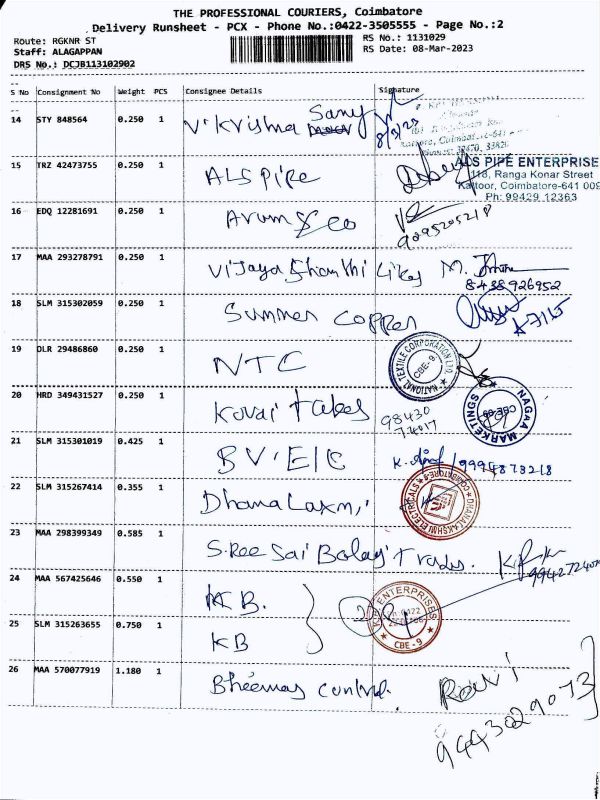 THE PROFESSIONAL COURIERS, Coimbatore
Delivery Runsheet - PCX - Phone No.:0422-3505555 - Page No.:2
Route: RGKNR ST
RS No.: 1131029
Staff: ALAGAPPAN
RS Date: 08-Mar-2023
DRS No.: DCJB113102902
S No Consignment No Weight PCS Consignee Details Signature
14 STY 848564 0.250 1 V' Krishna Sany
8/3/23
15 TRZ 42473755 0.250 1 ALS pipe
ALS PIPE ENTERPRISE
118, Ranga Konar Street
Kattoor, Coimbatore-641 009
Ph: 99429 12363
16 EDQ 12281691 0.250 1 Arum & co
9095205218
17 MAA 293278791 0.250 1 Vijaya Shanthi
8438926952
18 SLM 315302059 0.250 1 Summer Copper
19 DLR 29486860 0.250 1 NTC
NATIONAL TEXTILE CORPORATION LTD. CBE-9
20 HRD 349431527 0.250 1 Kovai Tubes
98430
NAGAA MARKETINGS CBE-09
21 SLM 315301019 0.425 1 BV'E/C
22 SLM 315267414 0.355 1 Dhana Laxmi
DHANALAKSHMI ELECTRICALS COIMBATORE-9
23 MAA 298399349 0.585 1 Sree Sai Balaji Trades.
24 MAA 567425646 0.550 1 KB.
25 SLM 315263655 0.750 1 KB
ENTERPRISES CBE - 9
26 MAA 570077919 1.180 1 Bheemas Control.
Ravi
9443029073